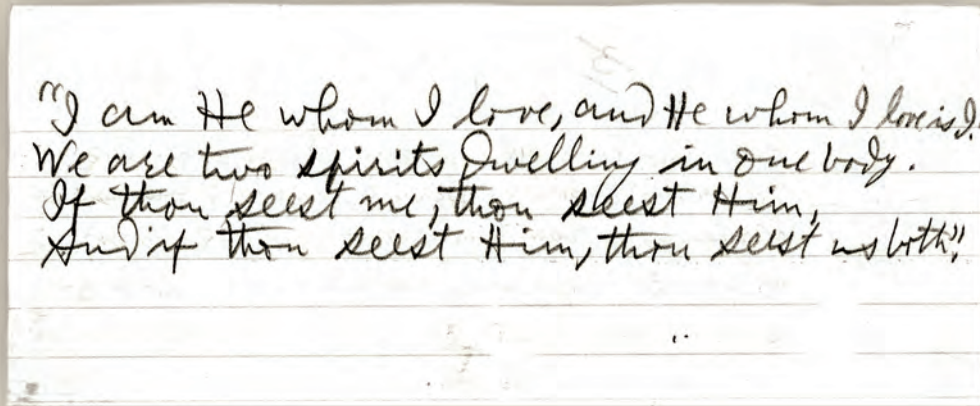 "I am He whom I love, and He whom I love is I.
We are two spirits Dwelling in one body.
If thou seest me, thou seest Him,
And if thou seest Him, thou seest us both".